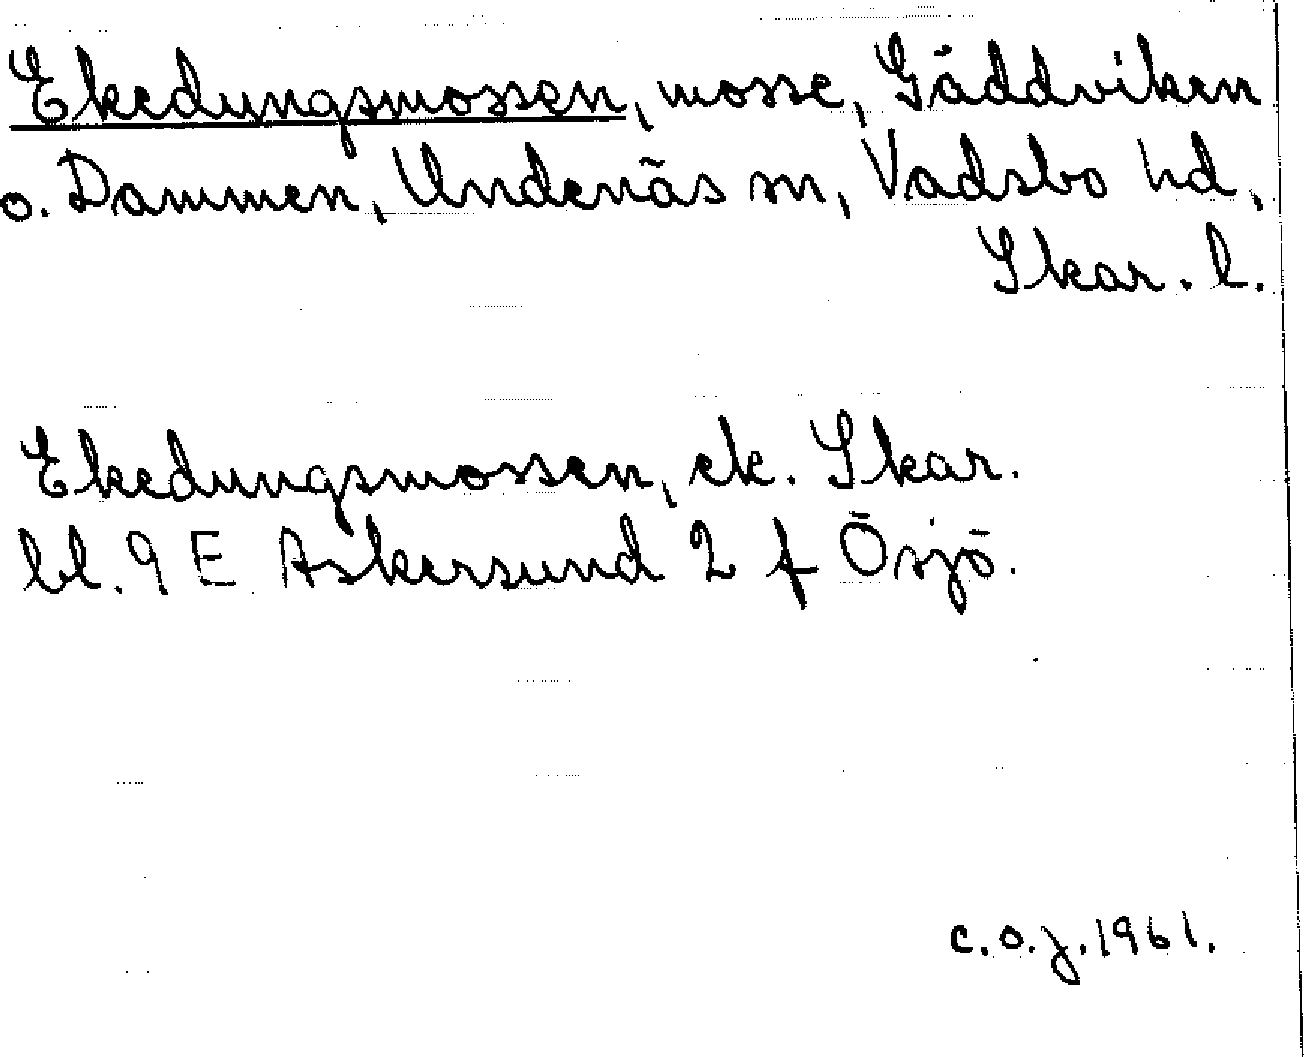 Ekedungsmossen, mosse, Gäddviken
o. Dammen, Undenäs sn, Vadsbo hd,
Skar. l.
Ekedungsmossen, ek. Skar.
bl. 9 E Askersund 2 f Örsjö.
c.o.j. 1961.